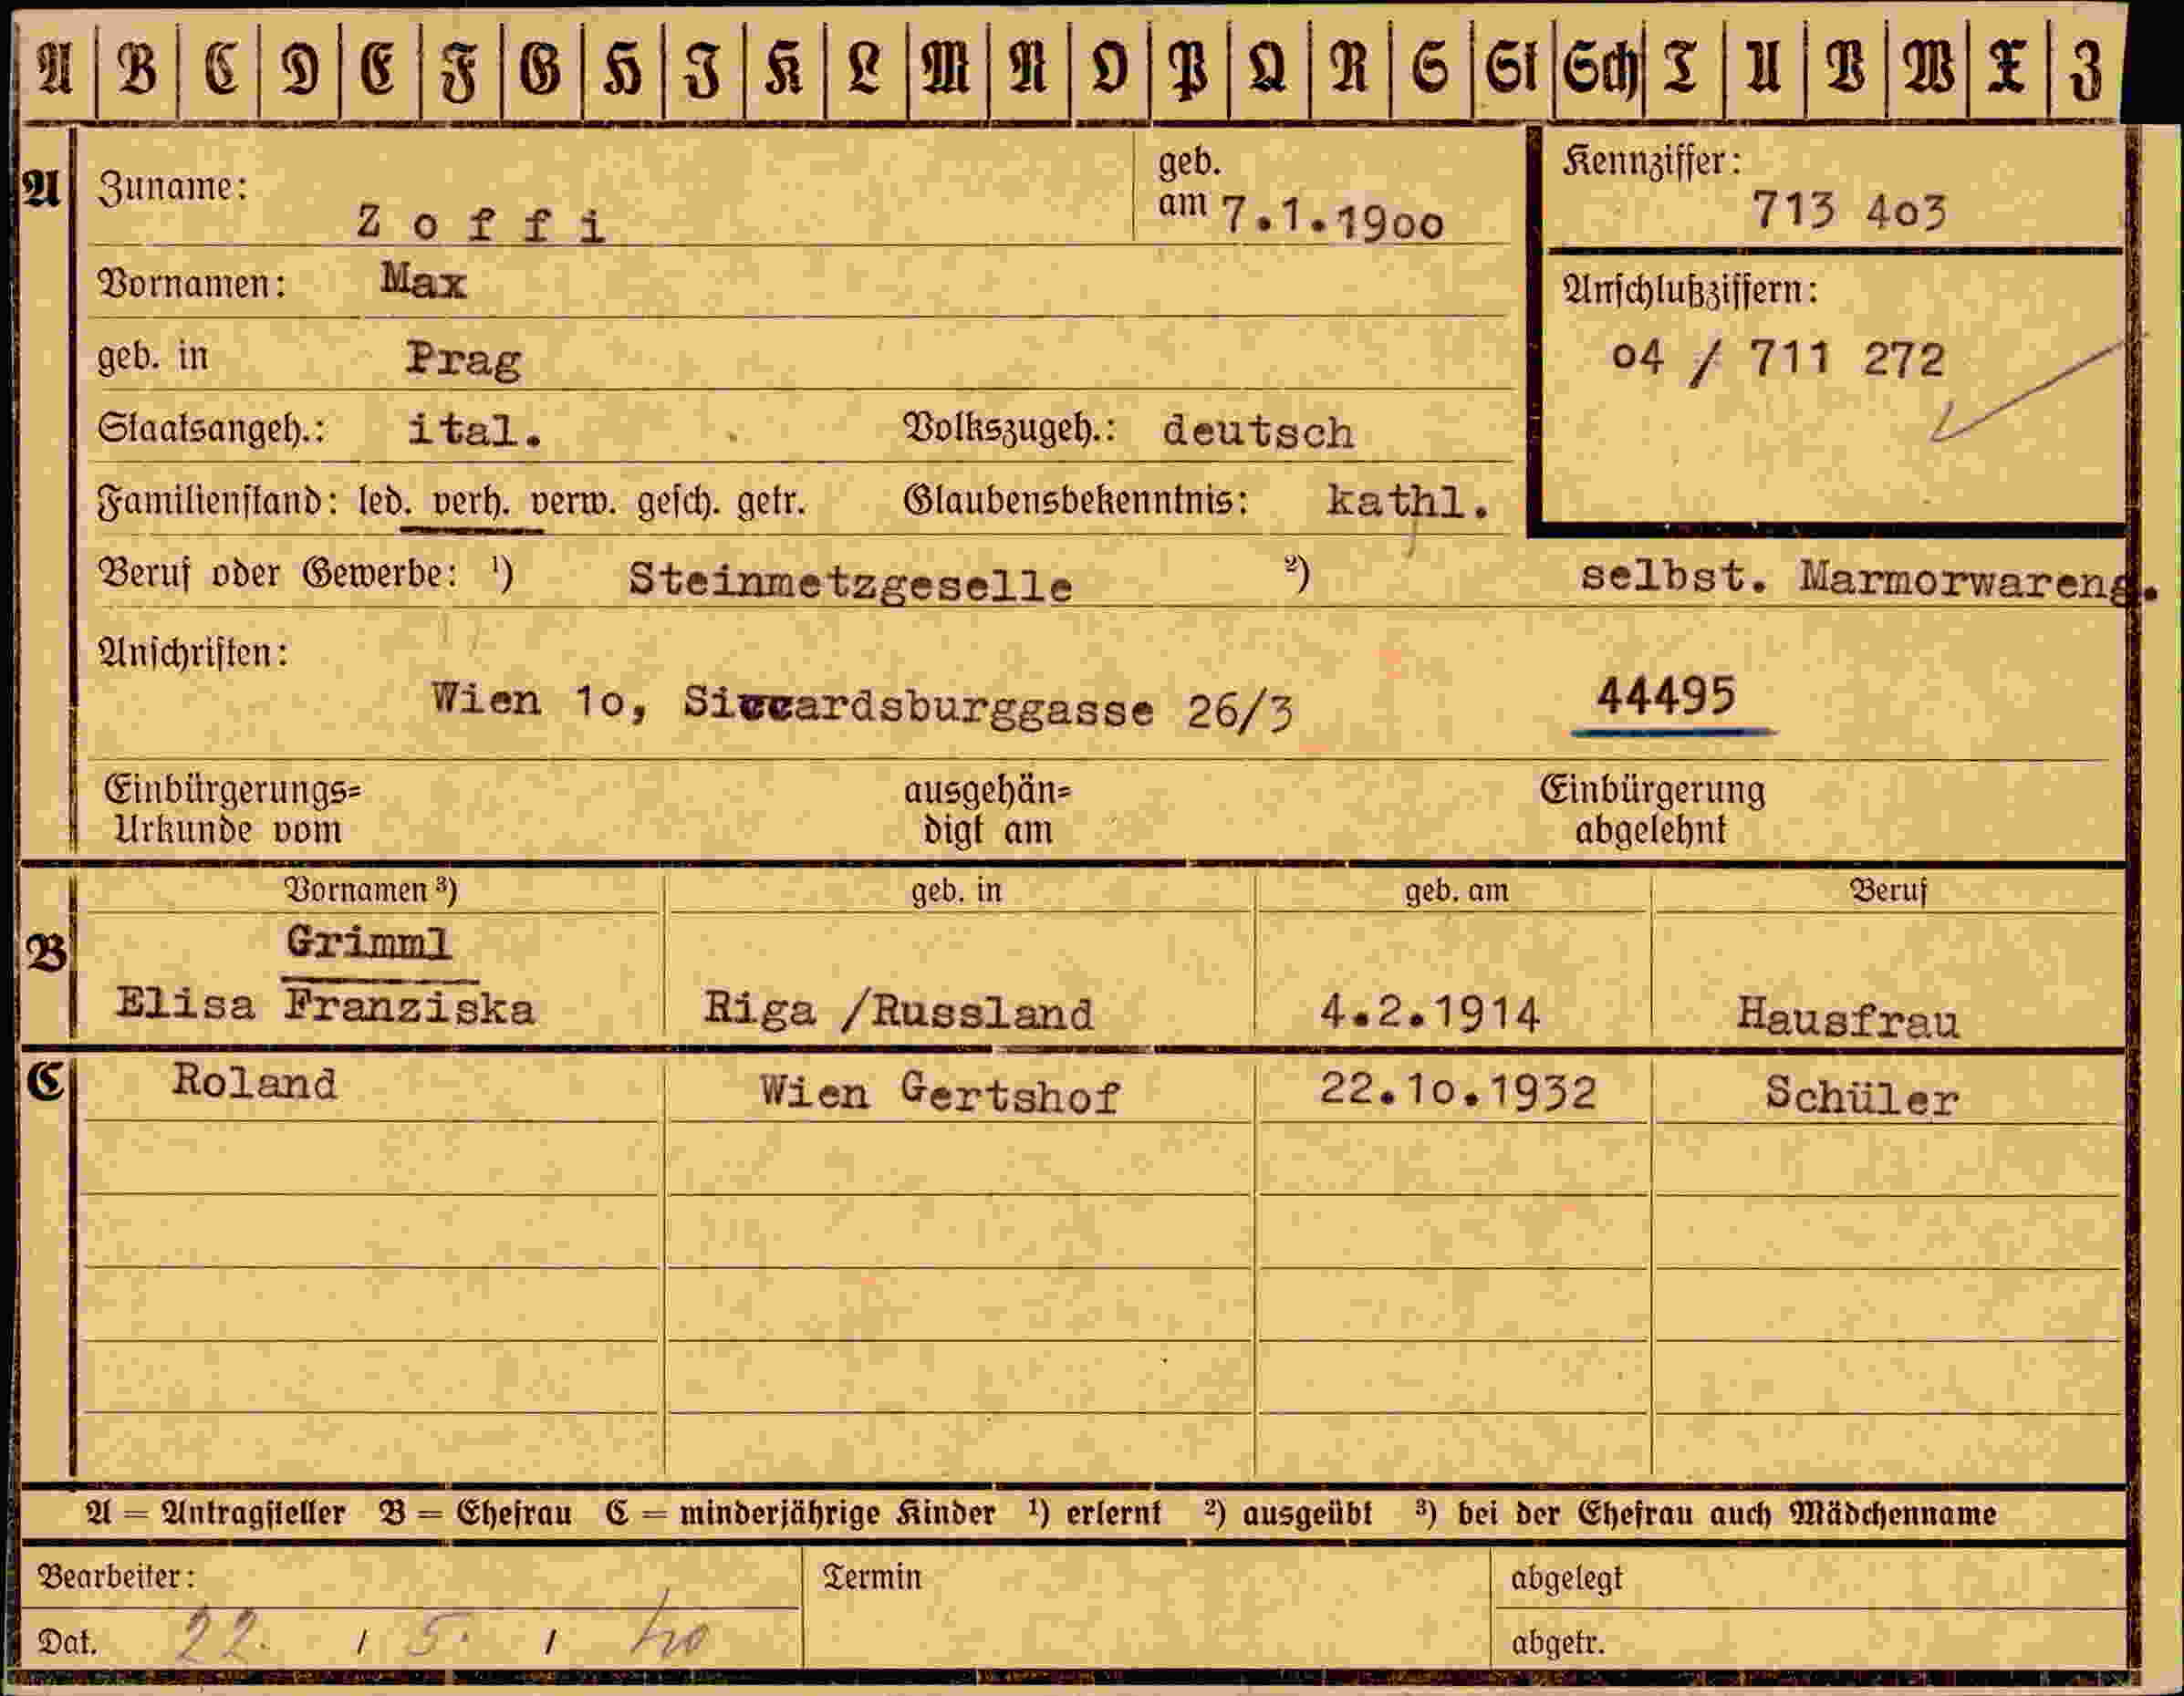 A B C D E F G H J K L M N O P Q R S St Sch T U V W X Z
A Zuname: Z o f f i geb. am 7.1.1900 Kennziffer: 713 4o3
Vornamen: Max
Anschlußziffern:
geb. in Prag o4 / 711 272
Staatsangeh.: ital. Volkszugeh.: deutsch
Familienstand: led. verh. verw. gesch. getr. Glaubensbekenntnis: kathl.
Beruf oder Gewerbe: ¹) Steinmetzgeselle ²) selbst. Marmorwareng.
Anschriften:
Wien 1o, Siccardsburggasse 26/3 44495
Einbürgerungs= ausgehän= Einbürgerung
Urkunde vom digt am abgelehnt
Vornamen ³) geb. in geb. am Beruf
B Grimml
Elisa Franziska Riga /Russland 4.2.1914 Hausfrau
C Roland Wien Gertshof 22.1o.1932 Schüler
A = Antragsteller B = Ehefrau C = minderjährige Kinder ¹) erlernt ²) ausgeübt ³) bei der Ehefrau auch Mädchenname
Bearbeiter: Termin abgelegt
Dat. 22. / 5. / 40 abgetr.